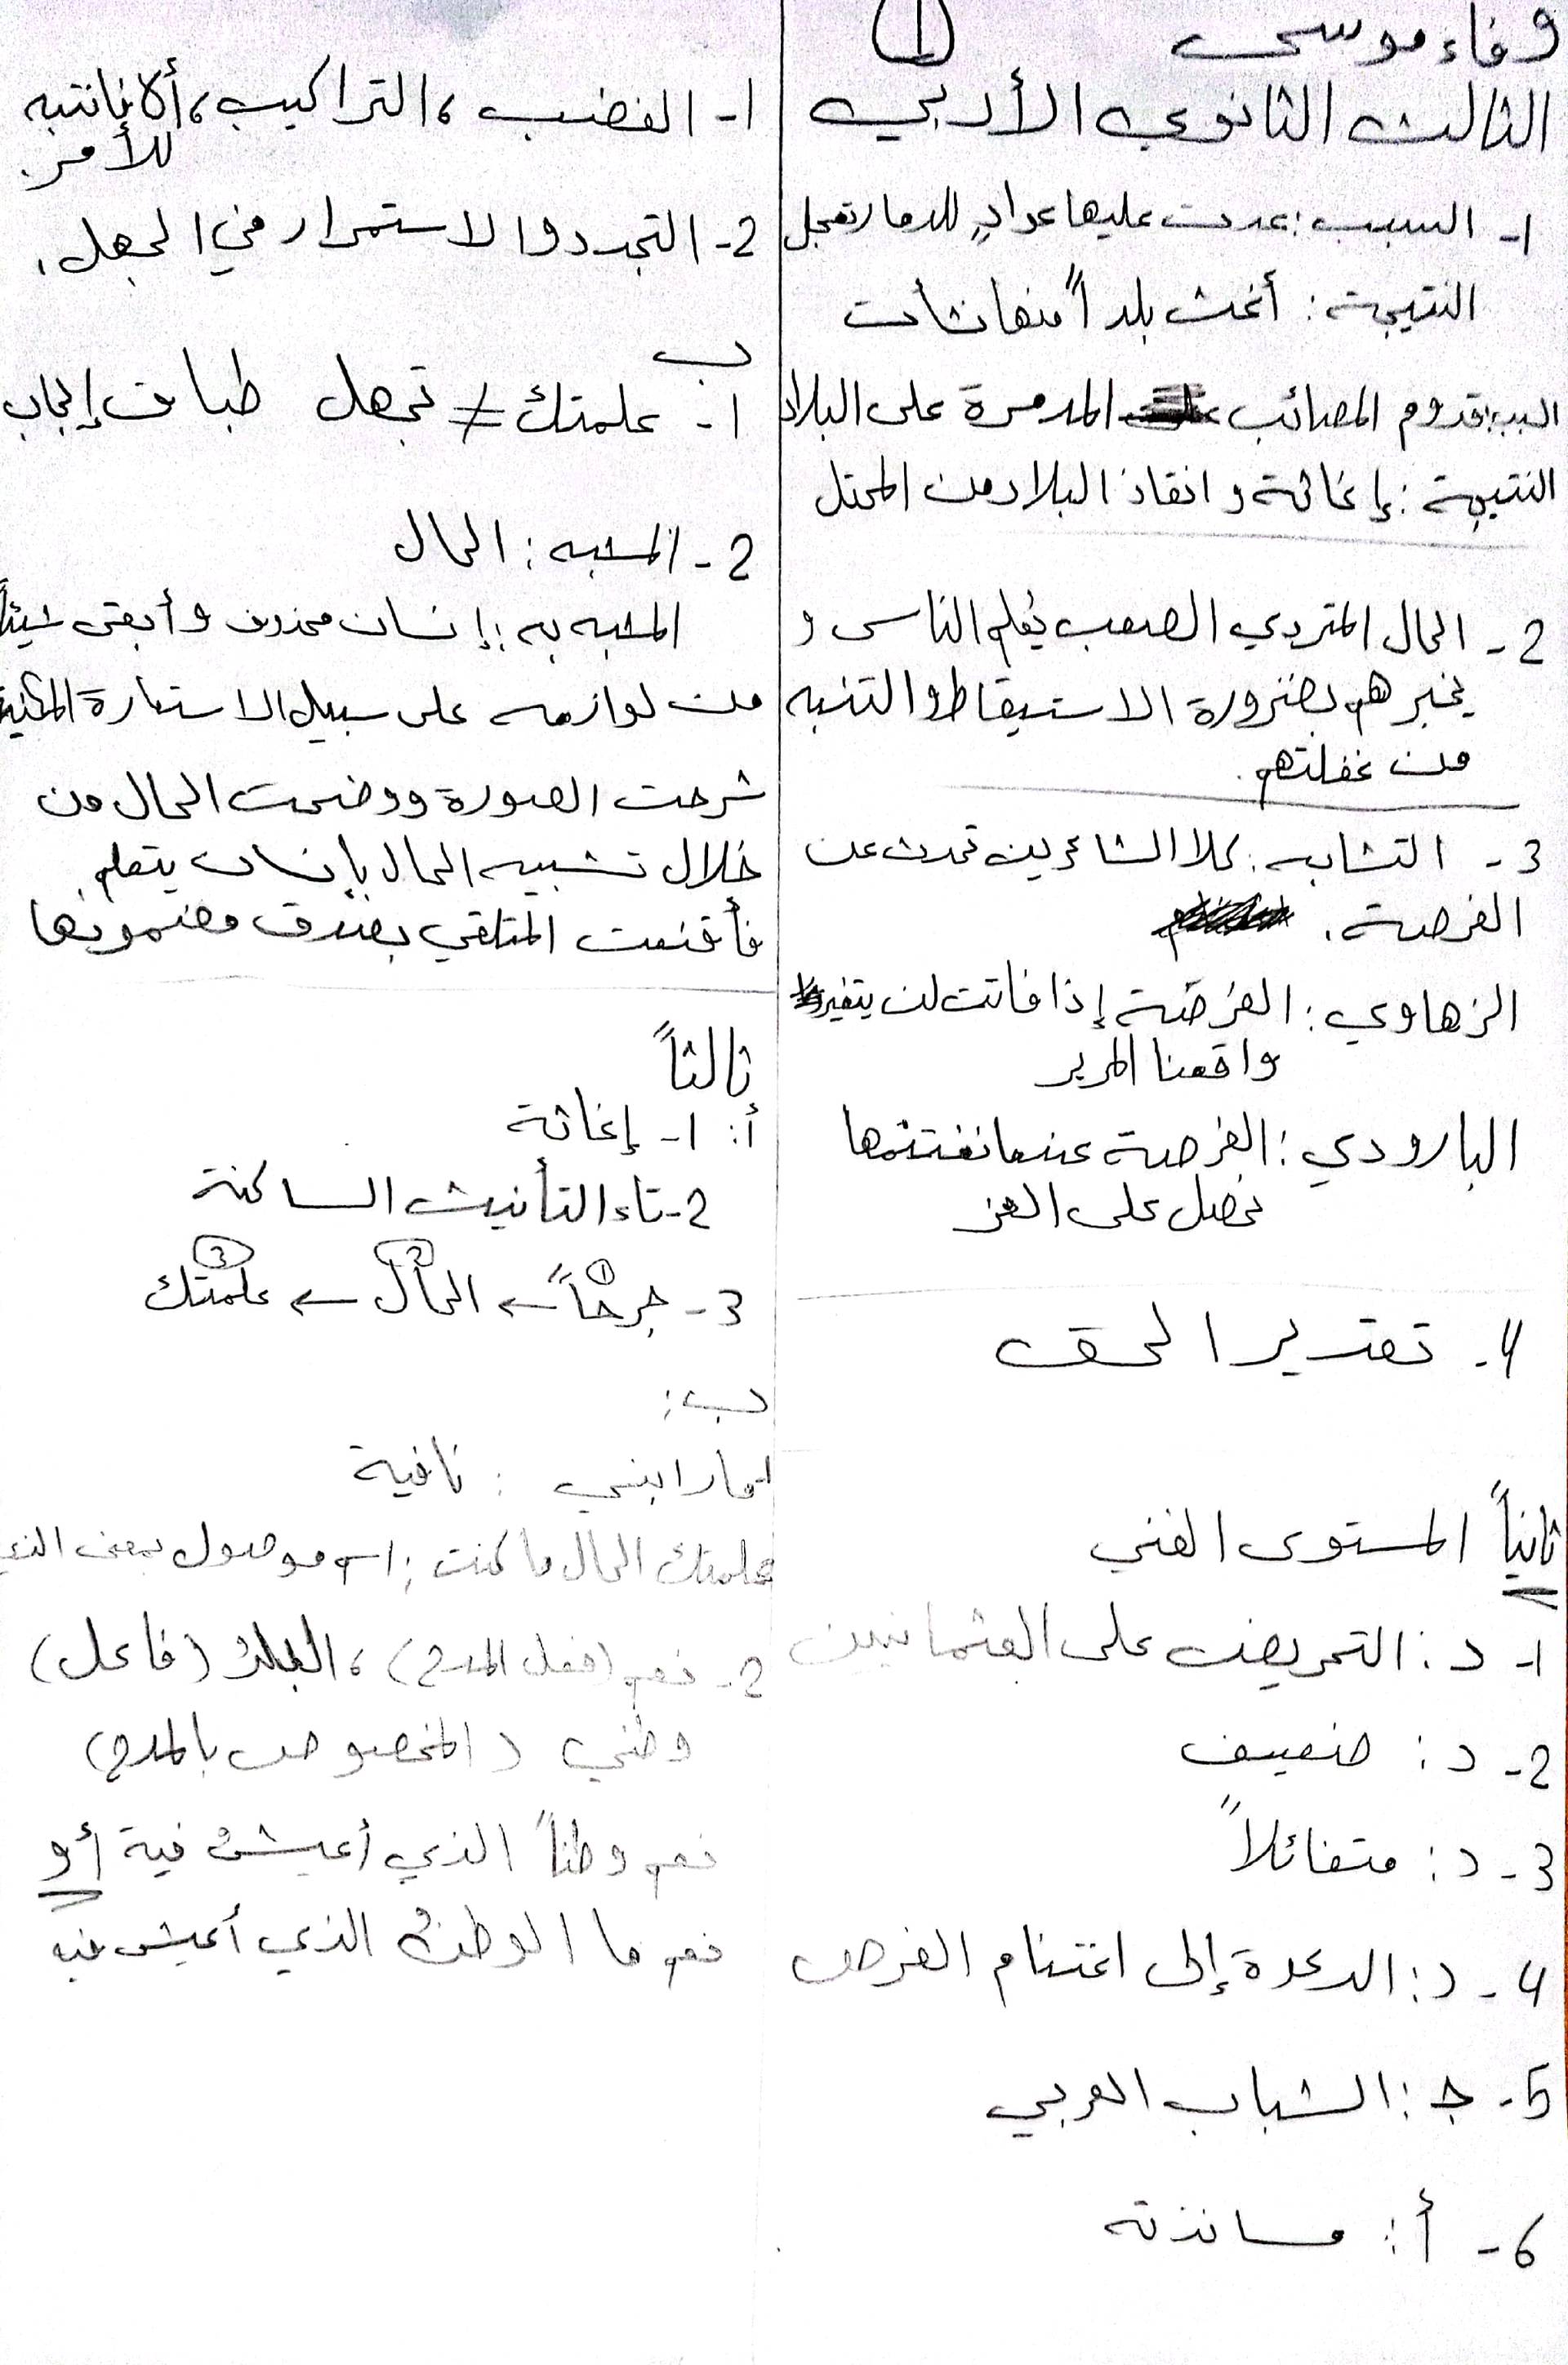 وفاء موسى
1
الثالث الثانوي الأدبي
1- السبب: عدت عليها عوادٍ للدمار تعجل
النتيجة: أغث بلداً منها نشأت
السبب: قدوم المصائب المدمرة على البلاد
النتيجة: إغاثة و انقاذ البلاد من المحتل
2- الحال المتردي الصعب يُعلم الناس و
يخبرهم بضرورة الاستيقاظ والتنبه
من غفلتهم.
3- التشابه: كلا الشاعرين تحدث عن
الفرصة.
الزهاوي: الفرصة إذا فاتت لن يتغير
واقعنا المرير
البارودي: الفرصة عندما نغتنمها
نحصل على العز
4- تقدير الحق
ثانياً المستوى الفني
1- د: التحريض على العثمانيين
2- د: ضعيف
3- د: متفائلاً
4- د: الدعوة إلى اغتنام الفرص
5- ج: الشباب العربي
6- أ: مساندته
1- الغضب، التراكيب، ألا فانتبه
للأمر.
2- التجدد والاستمرار في الجهل.
ب
1- علمتك ≠ تجهل طباق إيجاب
2- المشبه: الحال
المشبه به: إنسان محذوف وأبقى شيئاً
من لوازمه على سبيل الاستعارة المكنية
شرحت الصورة ووضحت الحال من
خلال تشبيه الحال بإنسان يتعلم
فأقنعت المتلقي بصدق مضمونها
ثالثاً
أ: 1- إغاثة
2- تاء التأنيث الساكنة
3- جرحاً ← الحال ← علمتك
1 2 3
ب:
1- ما رابني : نافية
علمتك الحال ما كنت: اسم موصول بمعنى الذي
2- نعم (فعل المدح)، البلدُ (فاعل)
وطني (المخصوص بالمدح)
نعم وطناً الذي أعيشُ فية أو
نعم ما الوطنُ الذي أعيش فيه